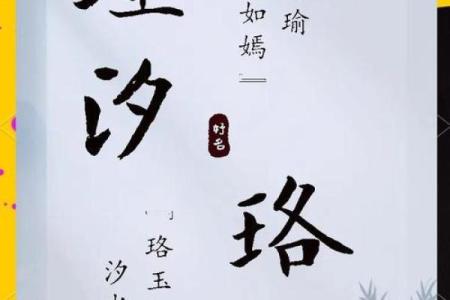 瑜
如嫣』
汐
好名
珞
珞玉
汐